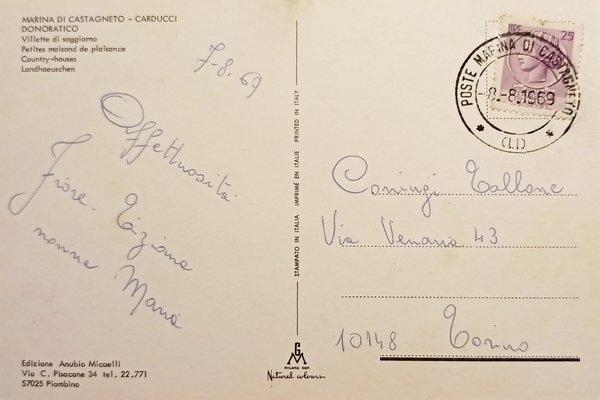 MARINA DI CASTAGNETO - CARDUCCI
DONORATICO
Villette di soggiorno
Petites maisond de plaisance
Country-houses
Landhaeuschen
7-8.69
Affettuosità
Fiore. Tiziana
nonna Maria
Edizione Anubio Micaelli
Via C. Pisacane 34 tel. 22.771
57025 Piombino
STAMPATO IN ITALIA IMPRIMÉ EN ITALIE PRINTED IN ITALY
G
M
MILANO
Natural colours
LIRE 25
POSTE MARINA DI CASTAGNETO
-8.-8.1969
* (LI) *
Coniugi Tallone
Via Venaria 43
10148 Torino